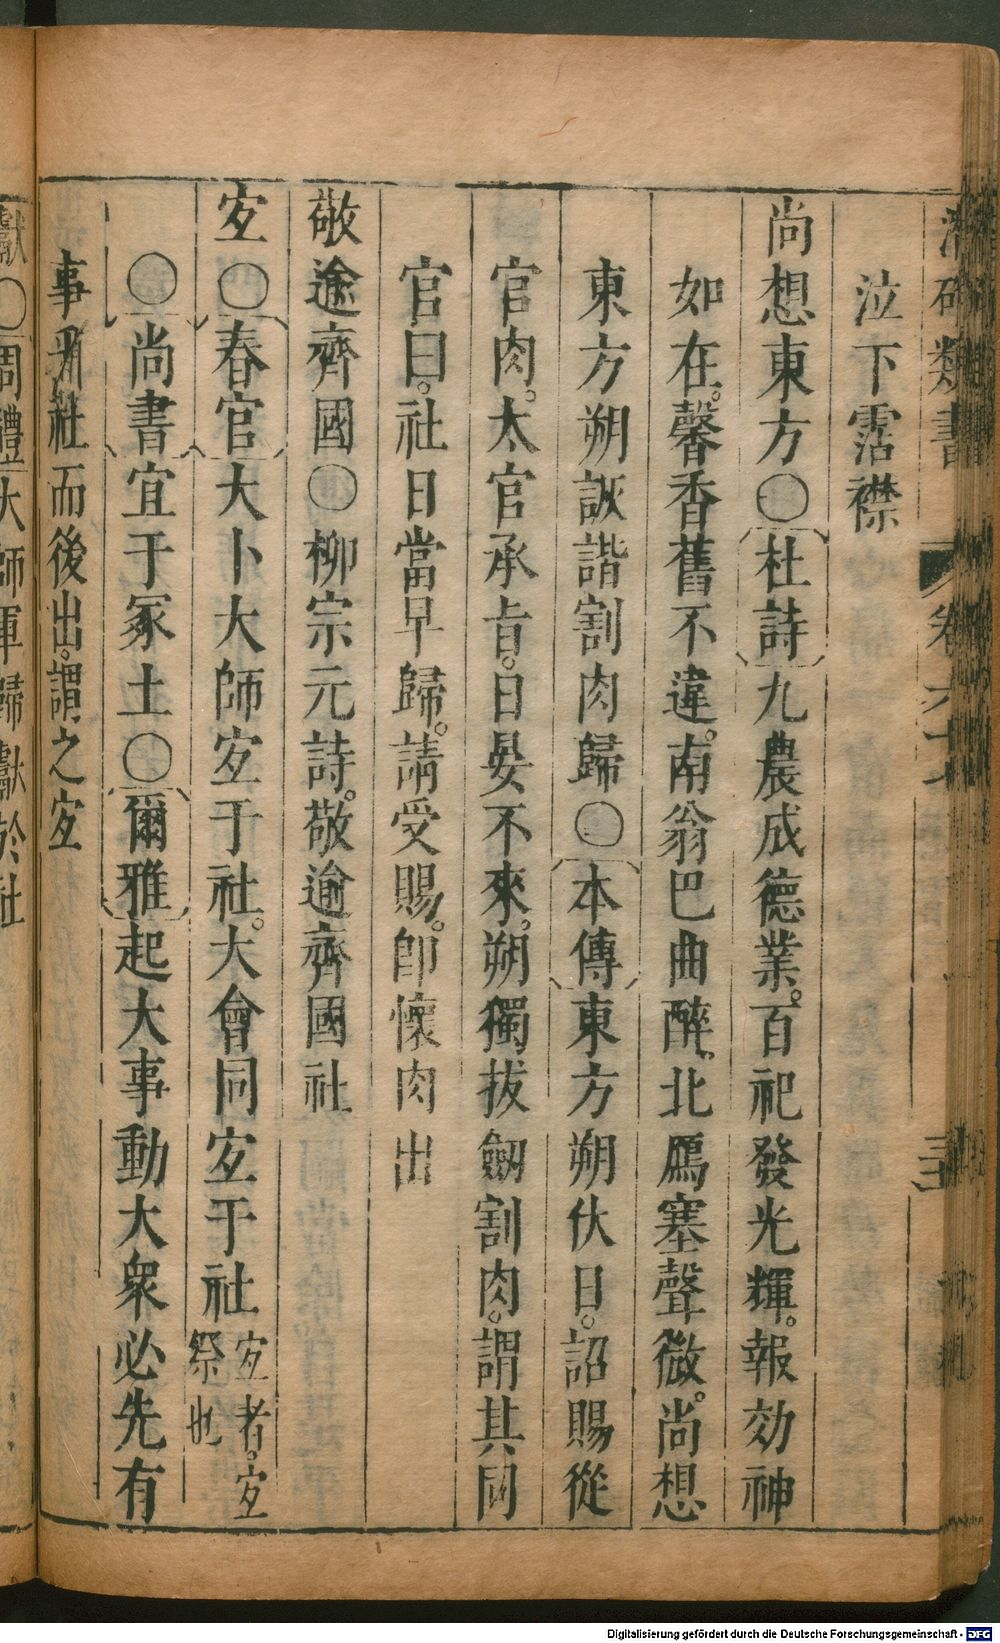 潛確類書 卷六十
泣下霑襟
尚想東方〇杜詩九農成德業。百祀發光輝。報効神
如在。馨香舊不違。南翁巴曲醉。北鴈塞聲微。尚想
東方朔詼諧割肉歸〇本傳東方朔伏日。詔賜從
官肉。太官承㫖。日晏不來。朔獨拔劒割肉。謂其同
官曰。社日當早歸。請受賜。卽懷肉出
敬逾齊國〇柳宗元詩。敬逾齊國社
宐〇春官大卜大師宐于社。大會同宐于社宐者。宐
祭也
〇尚書宜于冢土〇爾雅起大事動大衆必先有
事乎社而後出。謂之宐
獻〇周禮大師軍歸獻於社
Digitalisierung gefördert durch die Deutsche Forschungsgemeinschaft - DFG